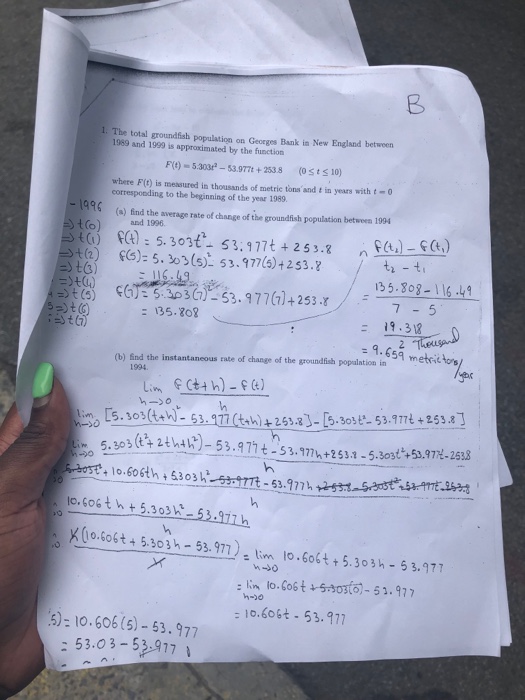 B
1. The total groundfish population on Georges Bank in New England between
1989 and 1999 is approximated by the function
F(t) = 5.303t² − 53.977t + 253.8 (0 ≤ t ≤ 10)
where F(t) is measured in thousands of metric tons and t in years with t = 0
corresponding to the beginning of the year 1989.
(a) find the average rate of change of the groundfish population between 1994
and 1996.
- 1996
=> t(0)
=> t(1)
=> t(2)
=> t(3)
=> t(4)
=> t(5)
=> t(6)
=> t(7)
f(t) = 5.303t² - 53.977t + 253.8
f(5) = 5.303(5)² - 53.977(5) + 253.8
= 116.49
f(7) = 5.303(7)² - 53.977(7) + 253.8
= 135.808
f(t₂) - f(t₁)
t₂ - t₁
= 135.808 - 116.49
7 - 5
= 19.318
2
= 9.659 Thousand metric tons/year
(b) find the instantaneous rate of change of the groundfish population in
1994.
lim f(t+h) - f(t)
h→0 h
lim [5.303(t+h)² - 53.977(t+h) + 253.8] - [5.303t² - 53.977t + 253.8]
h→0 h
lim 5.303(t² + 2th + h²) - 53.977t - 53.977h + 253.8 - 5.303t² + 53.977t - 253.8
h→0 h
5.303t² + 10.606th + 5.303h² - 53.977t - 53.977h + 253.8 - 5.303t² + 53.977t - 253.8
h
10.606th + 5.303h² - 53.977h
h
h(10.606t + 5.303h - 53.977) = lim 10.606t + 5.303h - 53.977
h h→0
= lim 10.606t + 5.303(0) - 53.977
h→0
= 10.606t - 53.977
5) = 10.606(5) - 53.977
= 53.03 - 53.977